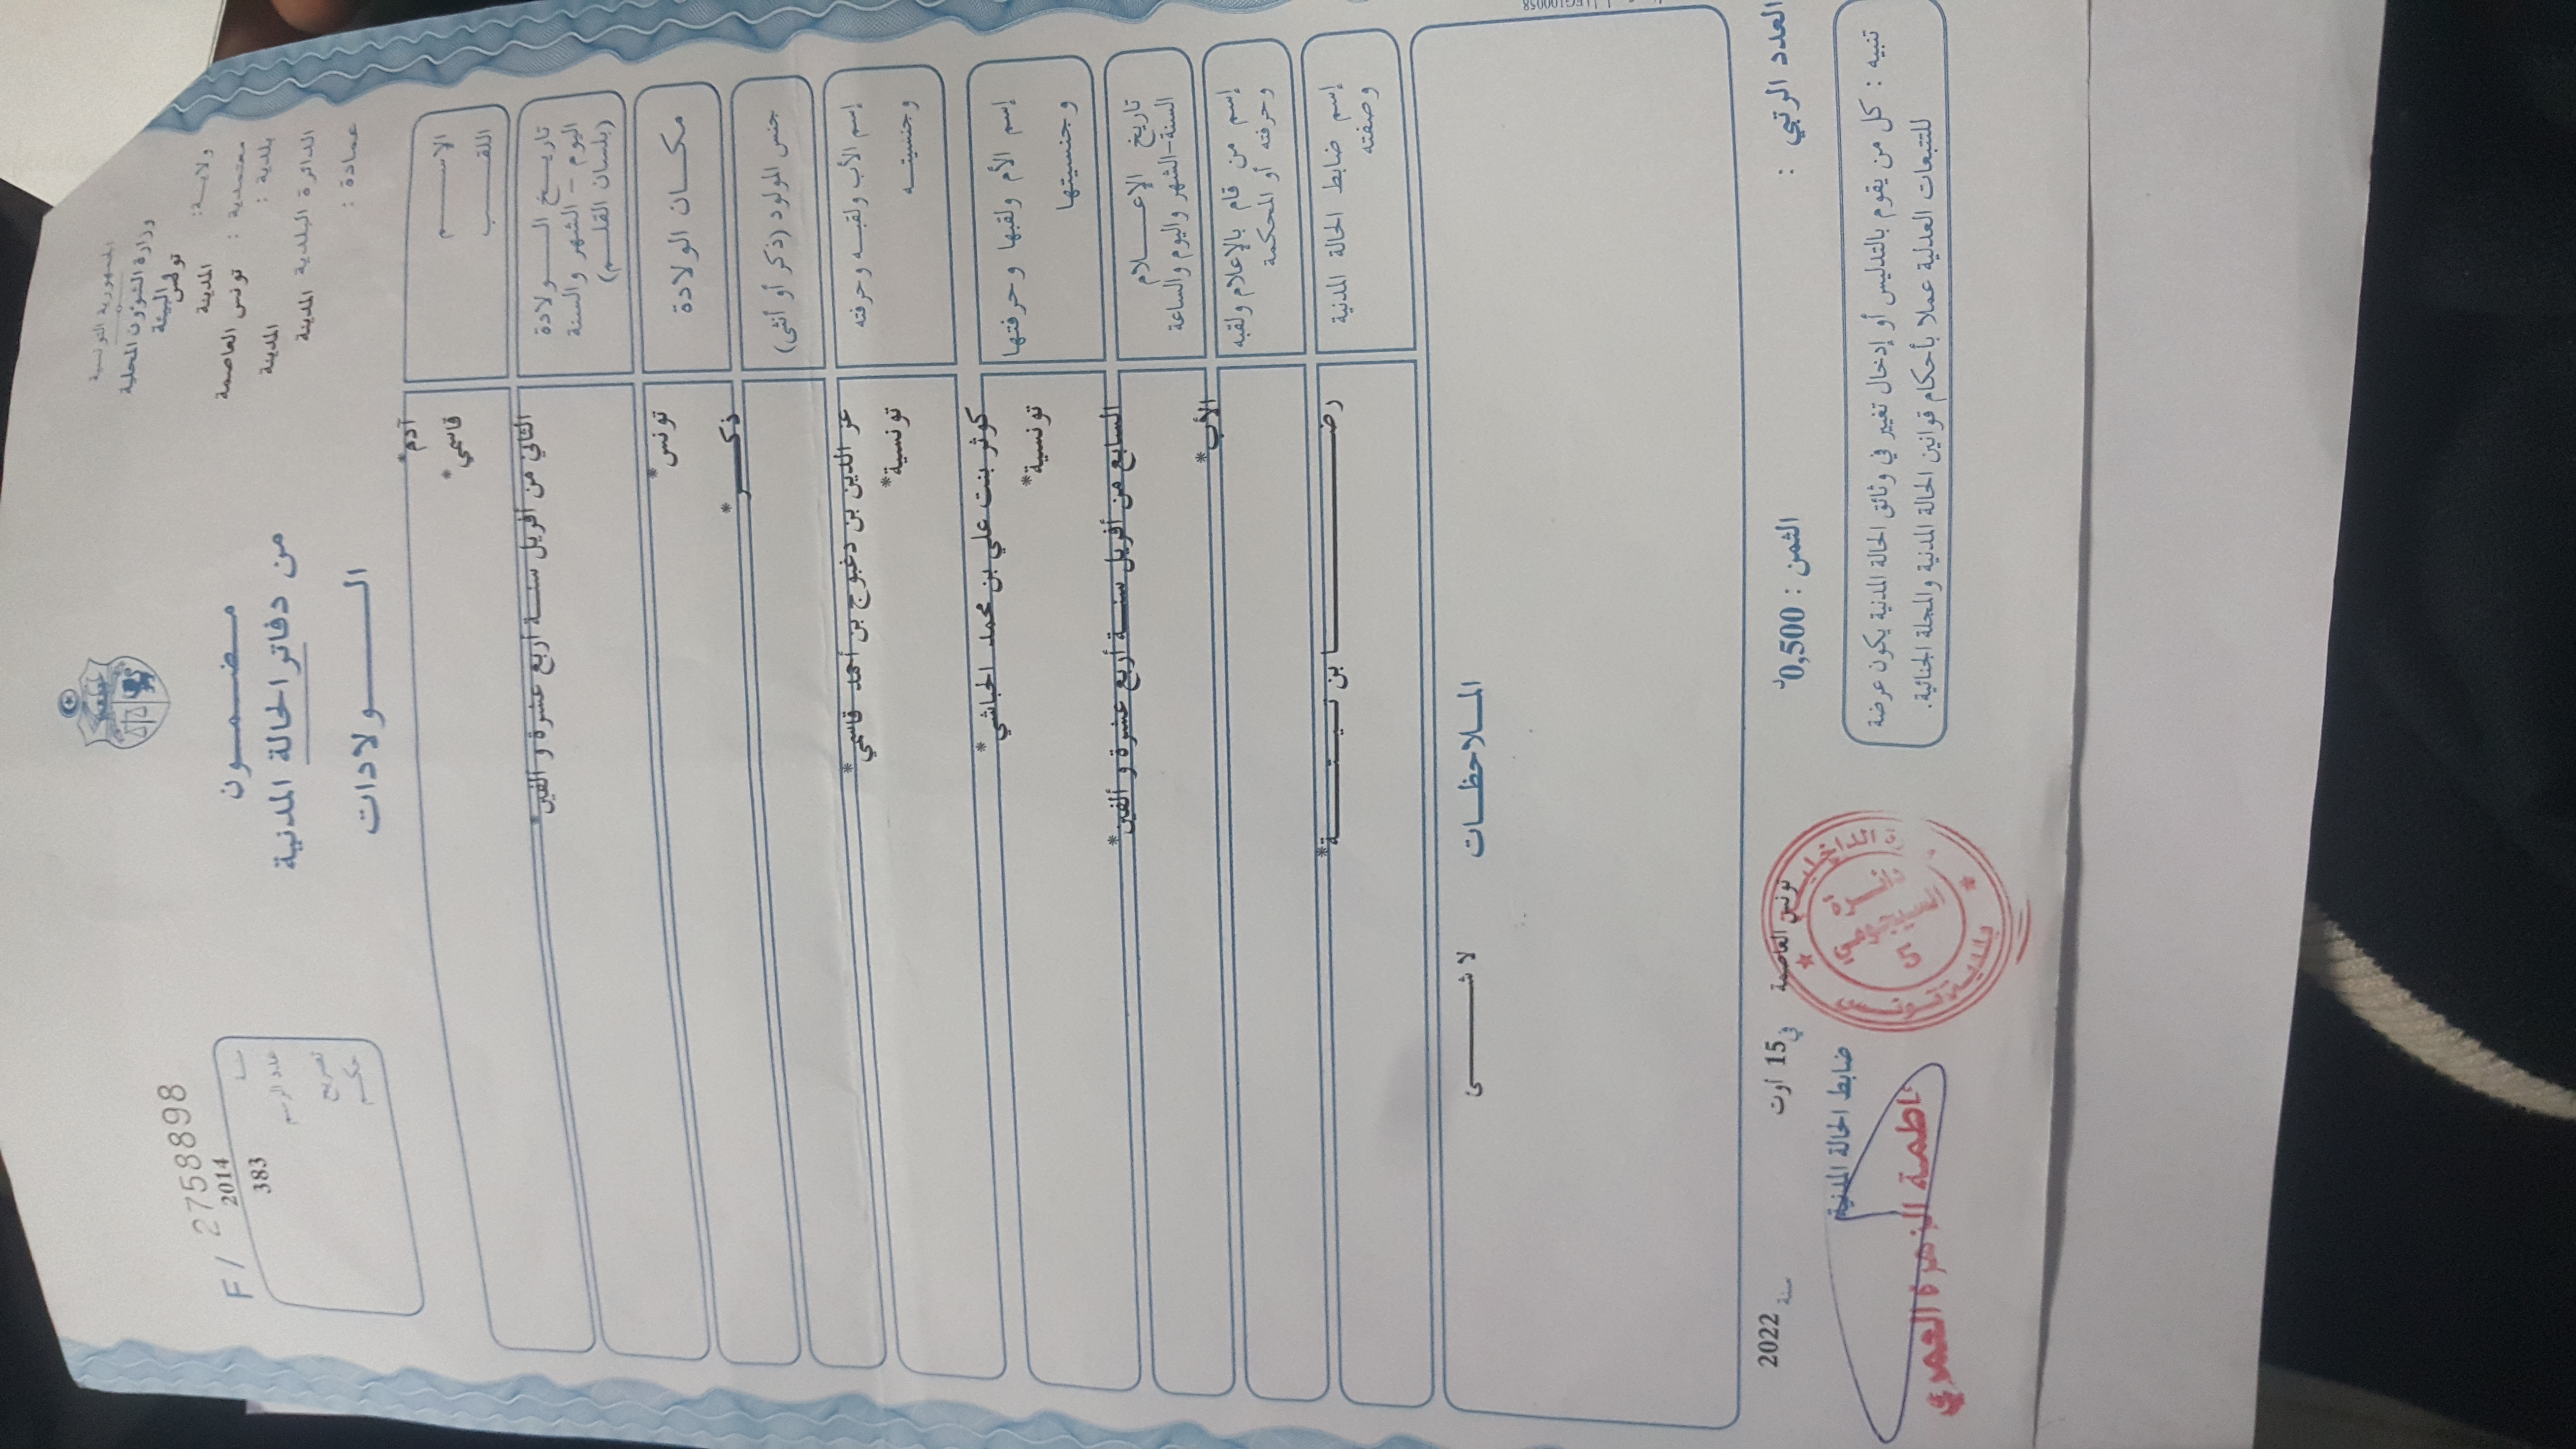 الجمهورية التونسية
وزارة الشؤون المحلية
والبيئة
ولايـــة: تونس
معتمدية : المدينة
بلدية : تونس العاصمة
الدائرة البلدية المدينة المدينة
عمادة :
مـــضـــمـــون
من دفاتر الحالة المدنية
الـــــــولادات
F / 2758898
2014
عدد الرسم 383
تصريح
حكـــم
الاســـــم آدم*
اللقـــــب قاسمي*
تاريـــخ الـــــولادة
اليوم - الشهر والسنة
(بلسان القلـــم)
الثاني من أفريل سنـــة أربع عشرة و ألفين*
مكـــان الولادة تونس*
جنس المولود (ذكر أو أنثى) ذكـــــر*
إسم الأب ولقبـه وحرفته عز الدين بن دغبوج بن أحمد قاسمي*
وجنسيتـــه تونسية*
إسم الأم ولقبها وحرفتها كوثر بنت علي بن محمد الحباشي*
وجنسيتها تونسية*
تاريخ الإعـــــلام
السنة-الشهر واليوم والساعة
السابع من أفريل سنـــة أربع عشرة و ألفين*
إسم من قام بالإعلام ولقبه
وحرفته أو المحكمة
الأب*
إسم ضابط الحالة المدنية
وصفته
رضـــــــــــــا بن نـيـتـــــــــة*
المـــلاحظـــات
لا شـــــــىء
العدد الرتبي :
الثمن : 0,500د
تونس العاصمة في 15 أوت سنة 2022
تنبيه : كل من يقوم بالتدليس أو إدخال تغيير في وثائق الحالة المدنية يكون عرضة
للتتبعات العدلية عملا بأحكام قوانين الحالة المدنية والمجلة الجنائية.
ضابط الحالة المدنية
بلدية تونس
دائرة
السيجومي
5
الزهرة العمدوني